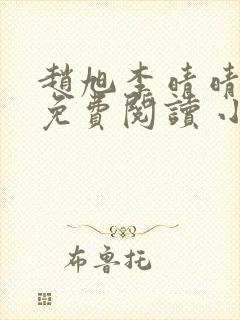 趙旭李晴晴
免費閱讀小
布魯托